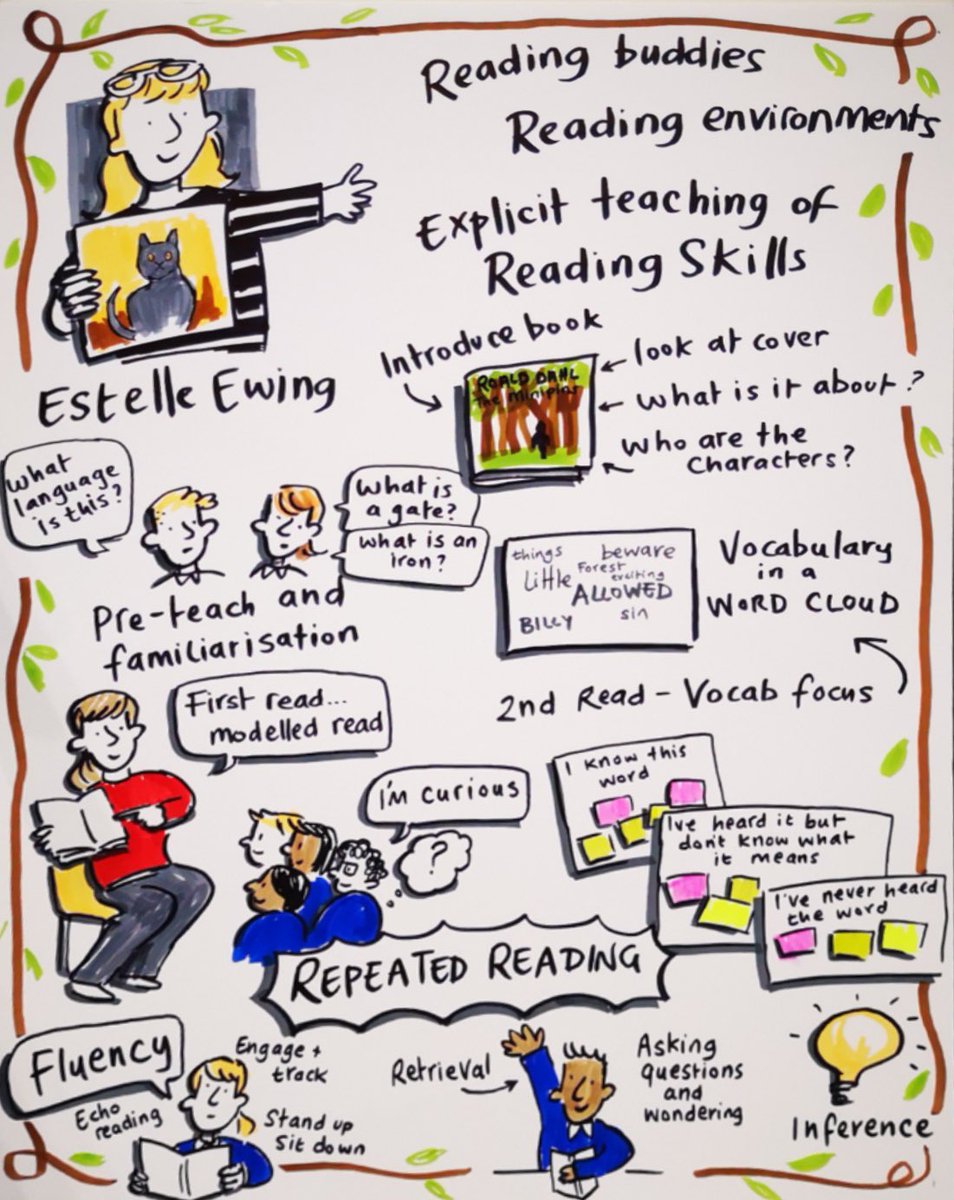 Reading buddies
Reading environments
Explicit teaching of
Reading Skills
Estelle Ewing
Introduce book
ROALD DAHL
The Minipins
look at cover
What is it about?
Who are the
characters?
What
language
is this?
What is
a gate?
What is an
iron?
Pre-teach and
familiarisation
things beware
Forest
Little exciting
ALLOWED
BILLY sin
Vocabulary
in a
WORD CLOUD
2nd Read - Vocab focus
First read...
modelled read
I'm curious
?
I know this
word
I've heard it but
don't know what
it means
I've never heard
the word
REPEATED READING
Fluency
Echo
reading
Engage +
track
Stand up
Sit down
Retrieval
Asking
questions
and
wondering
Inference